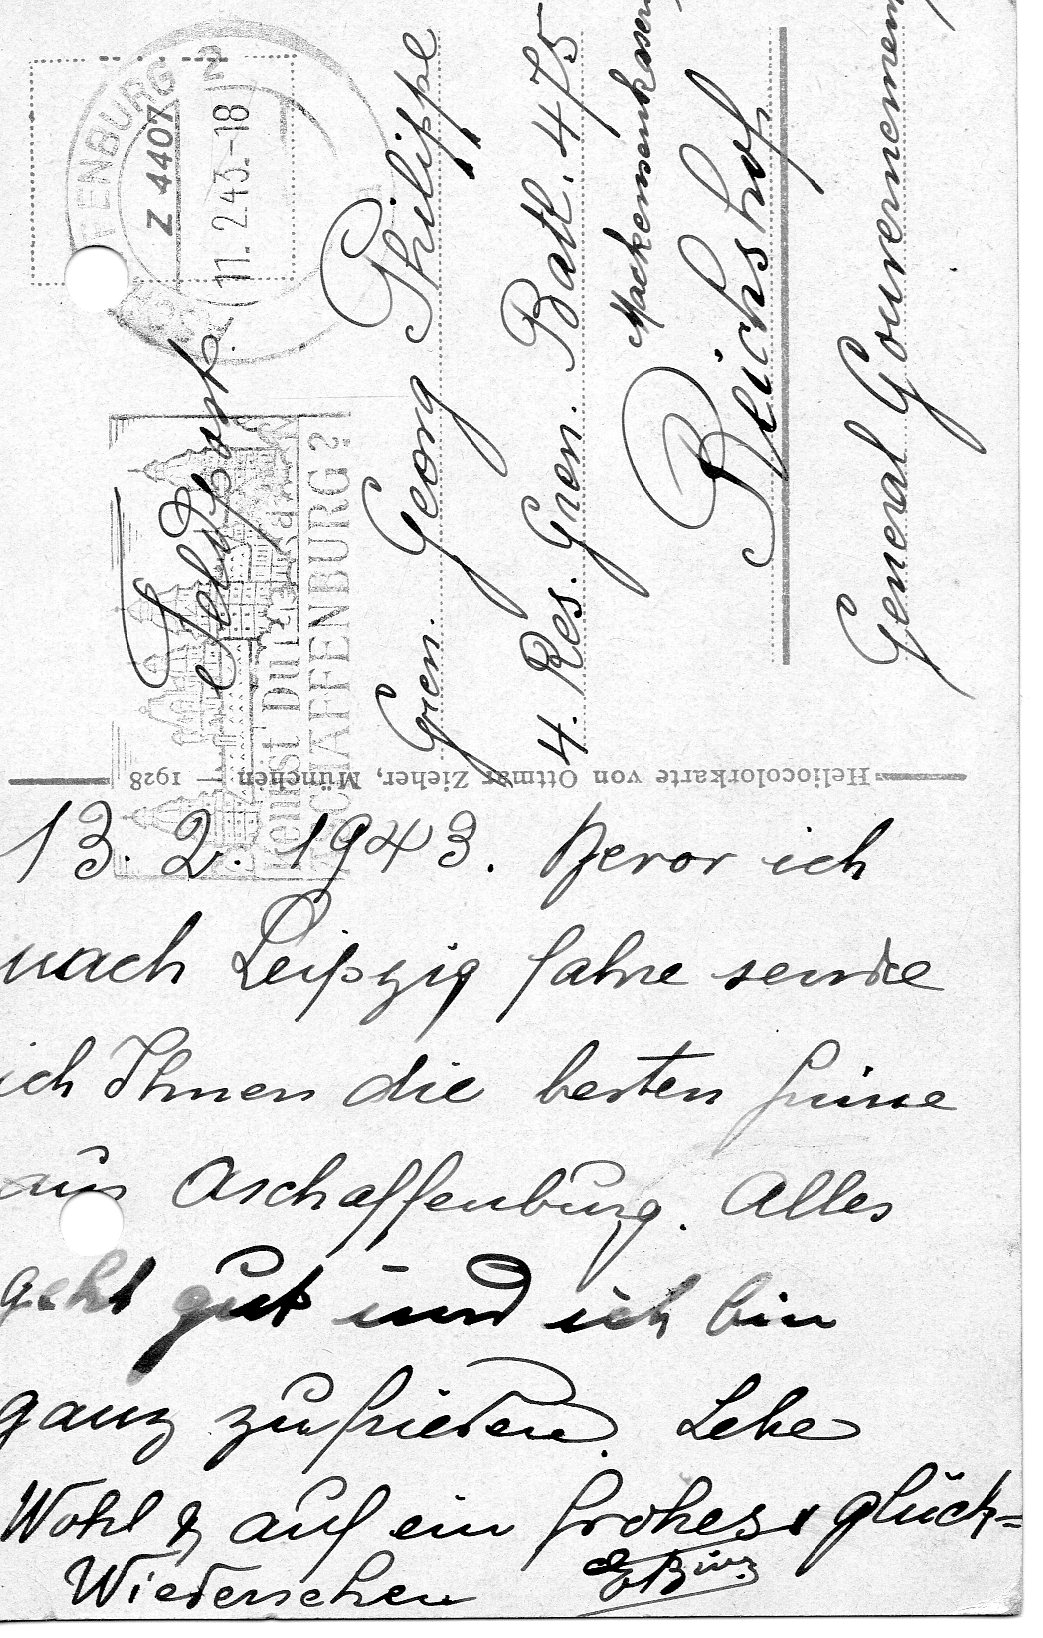 ASCHAFFENBURG 2
Z 4407
11.2.43.-18
Kennst Du
ASCHAFFENBURG?
Feldpost.
Gren. Georg Philippe
4. Res. Gren. Batl. 475
Mackensenkaserne
Reichshof
General Gouvernement
Heliocolorkarte von Ottmar Zieher, München — 1928
13. 2. 1943. Bevor ich
nach Leipzig fahre sende
ich Ihnen die besten Grüsse
aus Aschaffenburg. Alles
geht gut und ich bin
ganz zufrieden. Lebe
Wohl & auf ein frohes & glück=
Wiedersehen